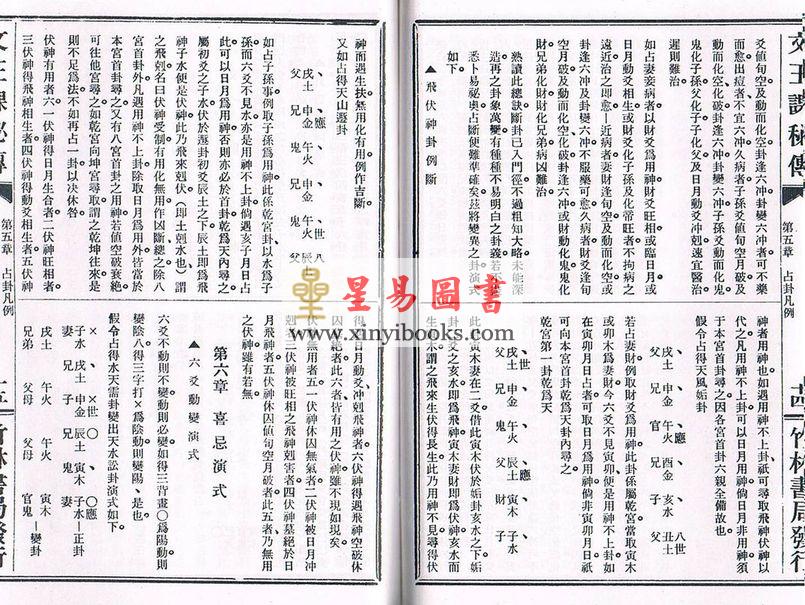 爻值旬空及動而化空卦逢六冲卦變六冲者可不藥
而愈出痘者不宜六冲久病者子孫爻值旬空月破及
動而化空化破卦逢六冲卦變六冲子孫爻動而化鬼
鬼化子孫父化子子化父及日月動爻冲尅遠宜醫治
遲則難治
如占妻妾病者以財爻爲用神財爻旺相或臨日月或
日月動爻生相或財爻化子孫及化帝旺者不拘病之
遠近治之即愈︱近病者妻財逢旬空及動而化空或
卦逢六冲及卦變六冲不服藥可愈久病者財爻逢旬
空月破及動而化空化破卦逢六冲或財動化鬼鬼化
財兄弟化財財化兄弟病凶難治
熟讀此總訣斷卦已入門徑不過粗知大略未能深
造再之卦象萬變有種種不易明白之卦義若不
悉卜易祕奧占斷便難準確矣茲將變異之卦演式
如下
▲飛伏神卦例斷
神者用神也如遇用神不上卦祇可尋取飛神伏神以
代之凡用神不上卦可以日月用神倘日月非用神須
于本宮首卦尋之因各宮首卦六親全備故也
假令占得天風姤卦
父 戌土
兄 申金
官 午火 應
兄 酉金
子 亥水
父 丑土 世 八
若占妻財例取財爻爲用神此卦係屬乾宮當取寅木
或卯木爲妻財今六爻不見寅卯便是用神不上卦如
在寅卯月日占者可取日月爲用神倘非寅卯月日祇
可向本宮首卦乾爲天卦尋之
乾宮第一卦乾爲天
父 戌土
兄 申金
鬼 午火 應
父 辰土
財 寅木
子 子水
此寅木妻在二爻借此寅木伏於姤卦亥水之下姤
卦二爻之亥水即爲飛神寅木妻財即爲伏神亥水而
生寅木謂之飛來生伏得長生此乃用神不見尋得伏
神而遇生扶無用化有用例作吉斷
又如占得天山遯卦
父 戌土
兄 申金 應
鬼 午火
兄 申金
鬼 午火 世
父 辰土 八
如占子孫事例取子孫爲用神此係乾宮卦以水爲子
孫而六爻不見水亦是用神不上卦倘遇亥子月日占
此可以日月爲用神否則亦必於首卦乾爲天內尋之
屬初爻之子水伏於遯卦初爻辰土之下辰土即爲飛
神子水便是伏神此乃飛來尅伏（即土尅水也）謂
之飛尅名曰伏神受制有用化無用作凶斷總之除八
宮首卦外凡遇用神不上卦除取日月爲用外皆當於
本宮首卦尋之又有八宮首卦之用神若值空破衰絕
可往他宮尋之如乾宮向坤宮尋取謂之乾坤往來是
則不足爲法不如再占一卦以决休咎
伏神有用者六一伏神得日月生合者二伏神旺相者
三伏神得飛神相生者四伏神得動爻相生者五伏神
得日月動爻冲尅飛神者六伏神得遇飛神空破休
囚墓絕者此六者皆有用之伏神雖不現如現矣
伏神無用者五一伏神休囚無氣者二伏神被日月冲
尅者三伏神被旺相之飛神尅害者四伏神墓絕於日
月飛神者五伏神休囚值旬空月破者此五者乃無用
之伏神雖有若無
第六章 喜忌演式
▲六爻動變演式
六爻不動則不變動則必變如得三背畫〇爲陽動則
變陰八得三字打×爲陰動則變陽、是也
假令占得水天需卦變出天水訟卦演式如下
× 子水 妻 戌土 兄弟
、 戌土 兄
×世 申金 子 午火 父母
〇 辰土 兄 午火 父母
、 寅木 鬼
〇應 子水 妻 寅木 官鬼
正卦
變卦
文王課秘傳
第五章 占卦凡例
竹林書局發行
文王課秘傳
第五章 占卦凡例
竹林書局發行
星易圖書
www.xinyibooks.com